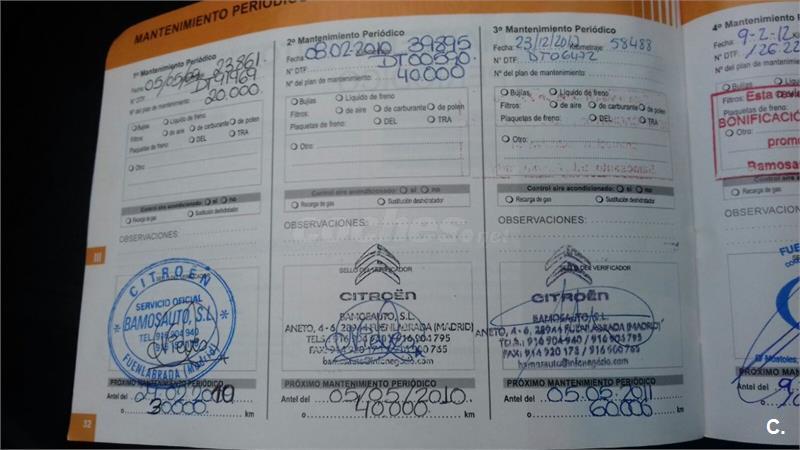 MANTENIMIENTO PERIÓDICO
1º Mantenimiento Periódico
Fecha: 05/05/09 23861
Nº DTF: DT41969
Nº del plan de mantenimiento: 20.000
Bujías Líquido de freno
Filtros: de aire de carburante de polen
Plaquetas de freno: DEL TRA
Otro:
Control aire acondicionado: si no
Recarga de gas Sustitución deshidratador
OBSERVACIONES:
CITROËN
SERVICIO OFICIAL
BAMOSAUTO, S.L.
TEL. 916 904 940
FUENLABRADA (Madrid)
PRÓXIMO MANTENIMIENTO PERIÓDICO
Antel del
o 30000 km
32
III
2º Mantenimiento Periódico
Fecha: 08.02.2010 39895
Nº DTF: DT00590
Nº del plan de mantenimiento: 40.000
Bujías Líquido de freno
Filtros: de aire de carburante de polen
Plaquetas de freno: DEL TRA
Otro:
Control aire acondicionado: si no
Recarga de gas Sustitución deshidratador
OBSERVACIONES:
SELLO DEL VERIFICADOR
CITROËN
BAMOSAUTO, S.L.
ANETO, 4-6, 28944 FUENLABRADA (MADRID)
TELS.: 916 904 940 / 916 904 795
bamosauto@infonegocio.com
PRÓXIMO MANTENIMIENTO PERIÓDICO
Antel del 05/05/2010
o 40.000 km
3º Mantenimiento Periódico
Fecha: 23/12/2010 Kilometraje: 58488
Nº DTF: DT06472
Nº del plan de mantenimiento:
Bujías Líquido de freno
Filtros: de aire de carburante de polen
Plaquetas de freno: DEL TRA
Otro:
Control aire acondicionado: si no
Recarga de gas Sustitución deshidratador
OBSERVACIONES:
SELLO DEL VERIFICADOR
CITROËN
BAMOSAUTO, S.L.
ANETO, 4-6, 28944 FUENLABRADA (MADRID)
bamosauto@infonegocio.com
PRÓXIMO MANTENIMIENTO PERIÓDICO
Antel del 05.05.2011
o 60000 km
4º Mantenimiento
9-2-12
Nº DTF:
Nº del plan de manten
Esta
BONIFICACIO
promo
Bamosa
Otro:
Control
Recarga de gas
OBSERVACIONES
PRÓXIMO MAN
Antel del
o
C.